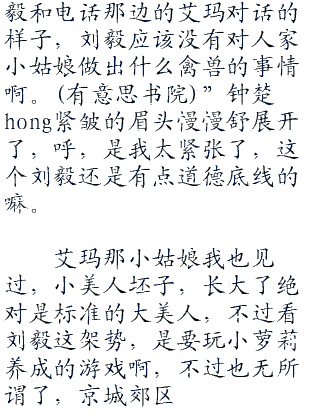 毅和电话那边的艾玛对话的
样子，刘毅应该没有对人家
小姑娘做出什么禽兽的事情
啊。(有意思书院)”钟楚
hong紧皱的眉头漫漫舒展开
了，呼，是我太紧张了，这
个刘毅还是有点道德底线的
嘛。
艾玛那小姑娘我也见
过，小美人坯子，长大了绝
对是标准的大美人，不过看
刘毅这架势，是要玩小萝莉
养成的游戏啊，不过也无所
谓了，京城郊区